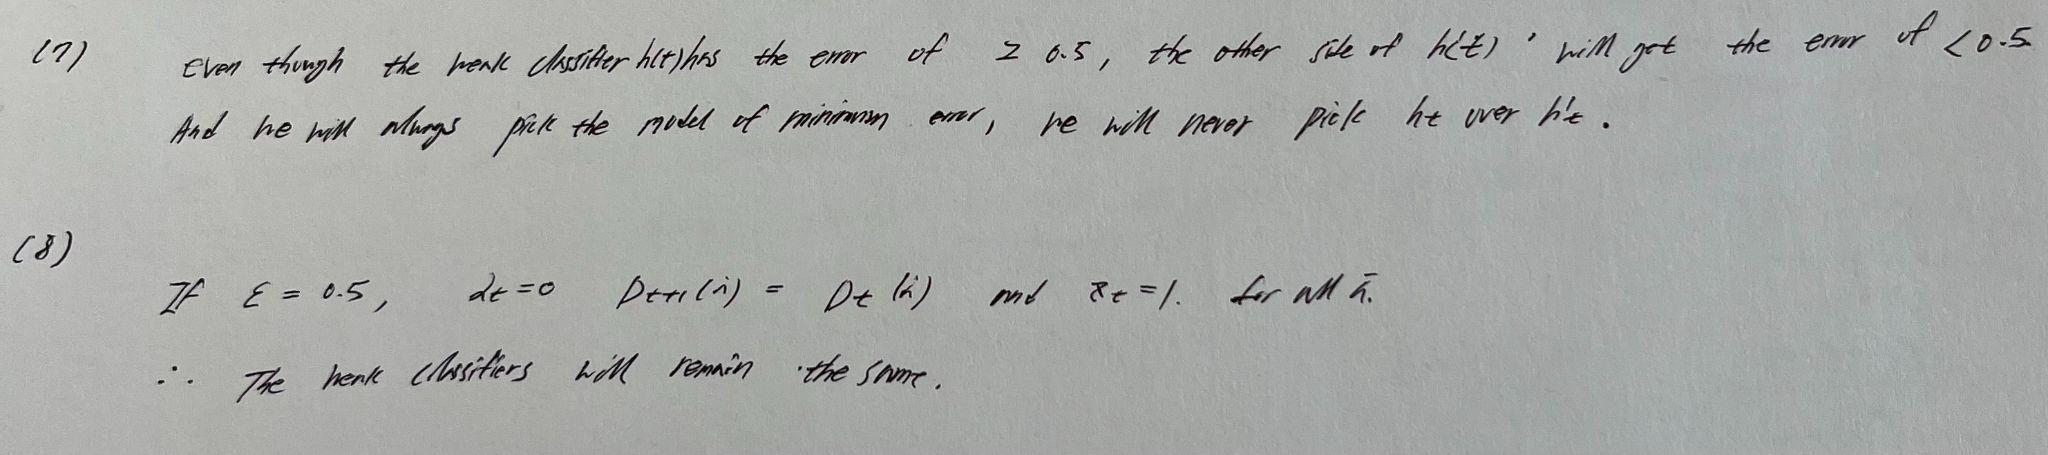 (7) Even though the weak classifier h(t) has the error of ≥ 0.5, the other side of h(t)' will get the error of < 0.5
And we will always pick the model of minimum error, we will never pick ht over h't.
(8)
If ε = 0.5, αt = 0 Dt+1(i) = Dt(i) and Zt = 1. for all i.
∴ The weak classifiers will remain the same.